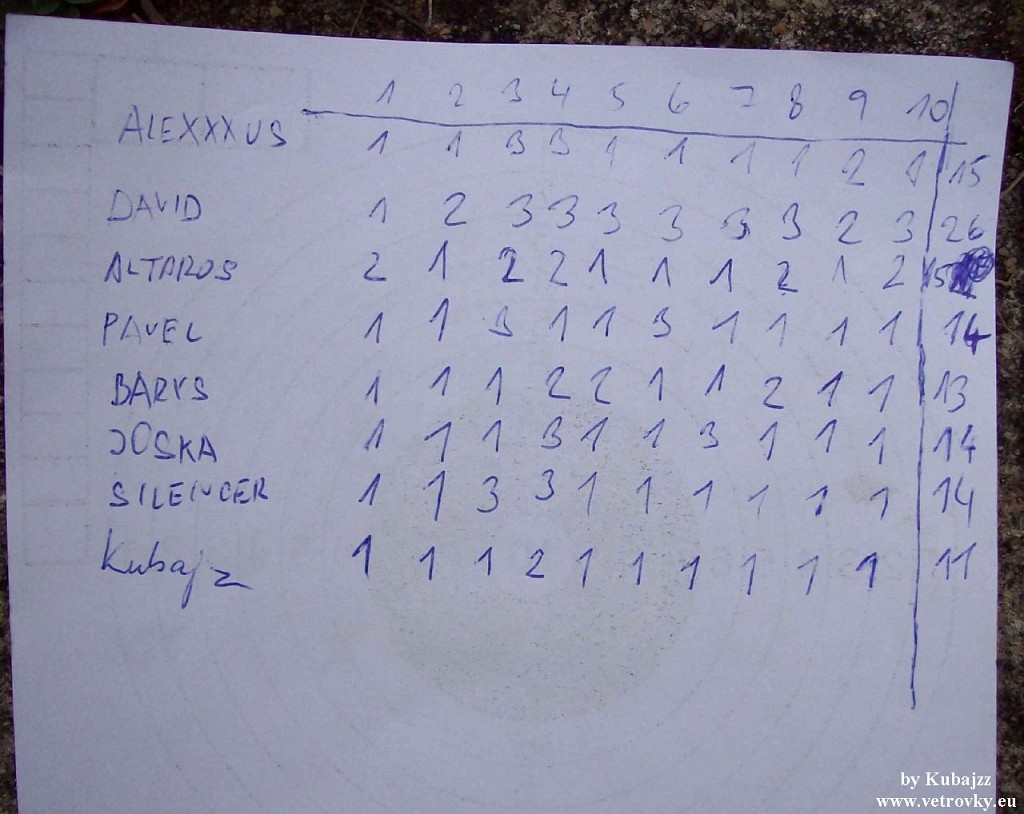 1 2 3 4 5 6 7 8 9 10
ALEXXXUS 1 1 3 3 1 1 1 1 2 1 15
DAVID 1 2 3 3 3 3 3 3 2 3 26
ALTAROS 2 1 2 2 1 1 1 2 1 2 15
PAVEL 1 1 3 1 1 3 1 1 1 1 14
BARYS 1 1 1 2 2 1 1 2 1 1 13
JOSKA 1 1 1 3 1 1 3 1 1 1 14
SILENCER 1 1 3 3 1 1 1 1 1 1 14
Kubajz 1 1 1 2 1 1 1 1 1 1 11
by Kubajzz
www.vetrovky.eu